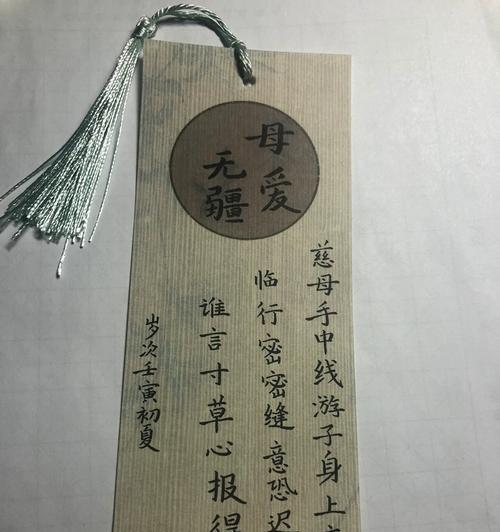 母爱
无疆
慈母手中线游子身上
临行密密缝意恐迟
谁言寸草心报得
岁次壬寅初夏